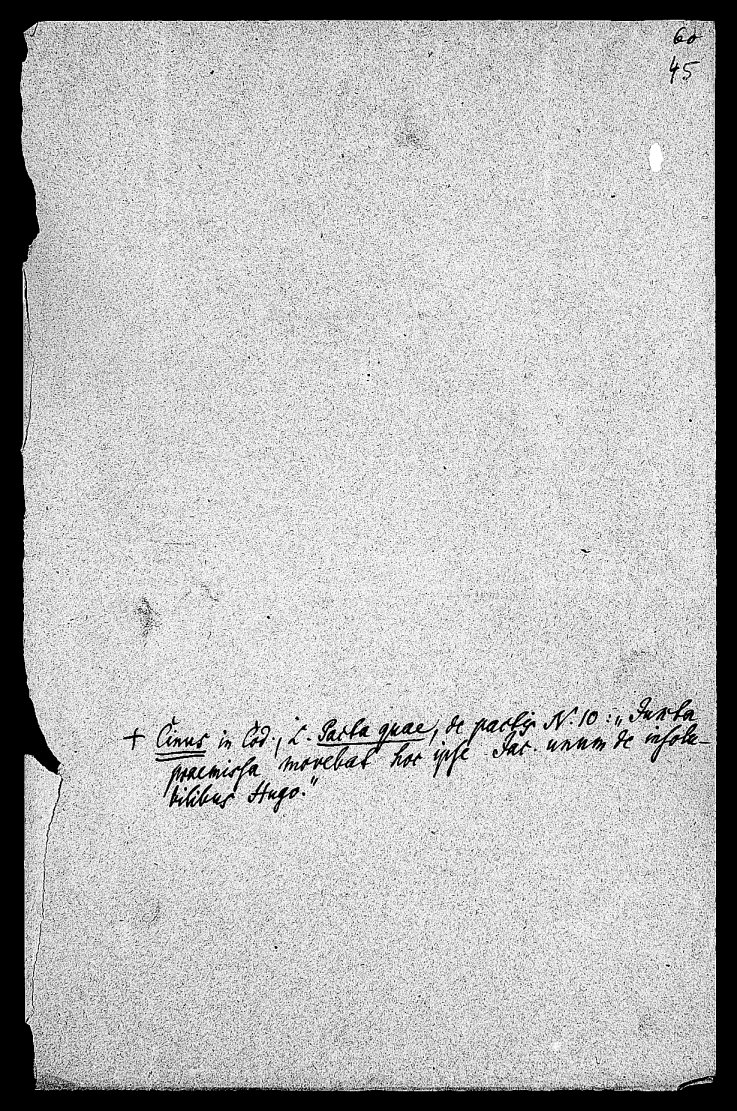 60
45
+ Cinus in Cod., L. Pacta quae, de pactis N. 10: „Iuxta
praemissa movebat hoc ipse Iac. unum de insolu-
bilibus Hugo.“